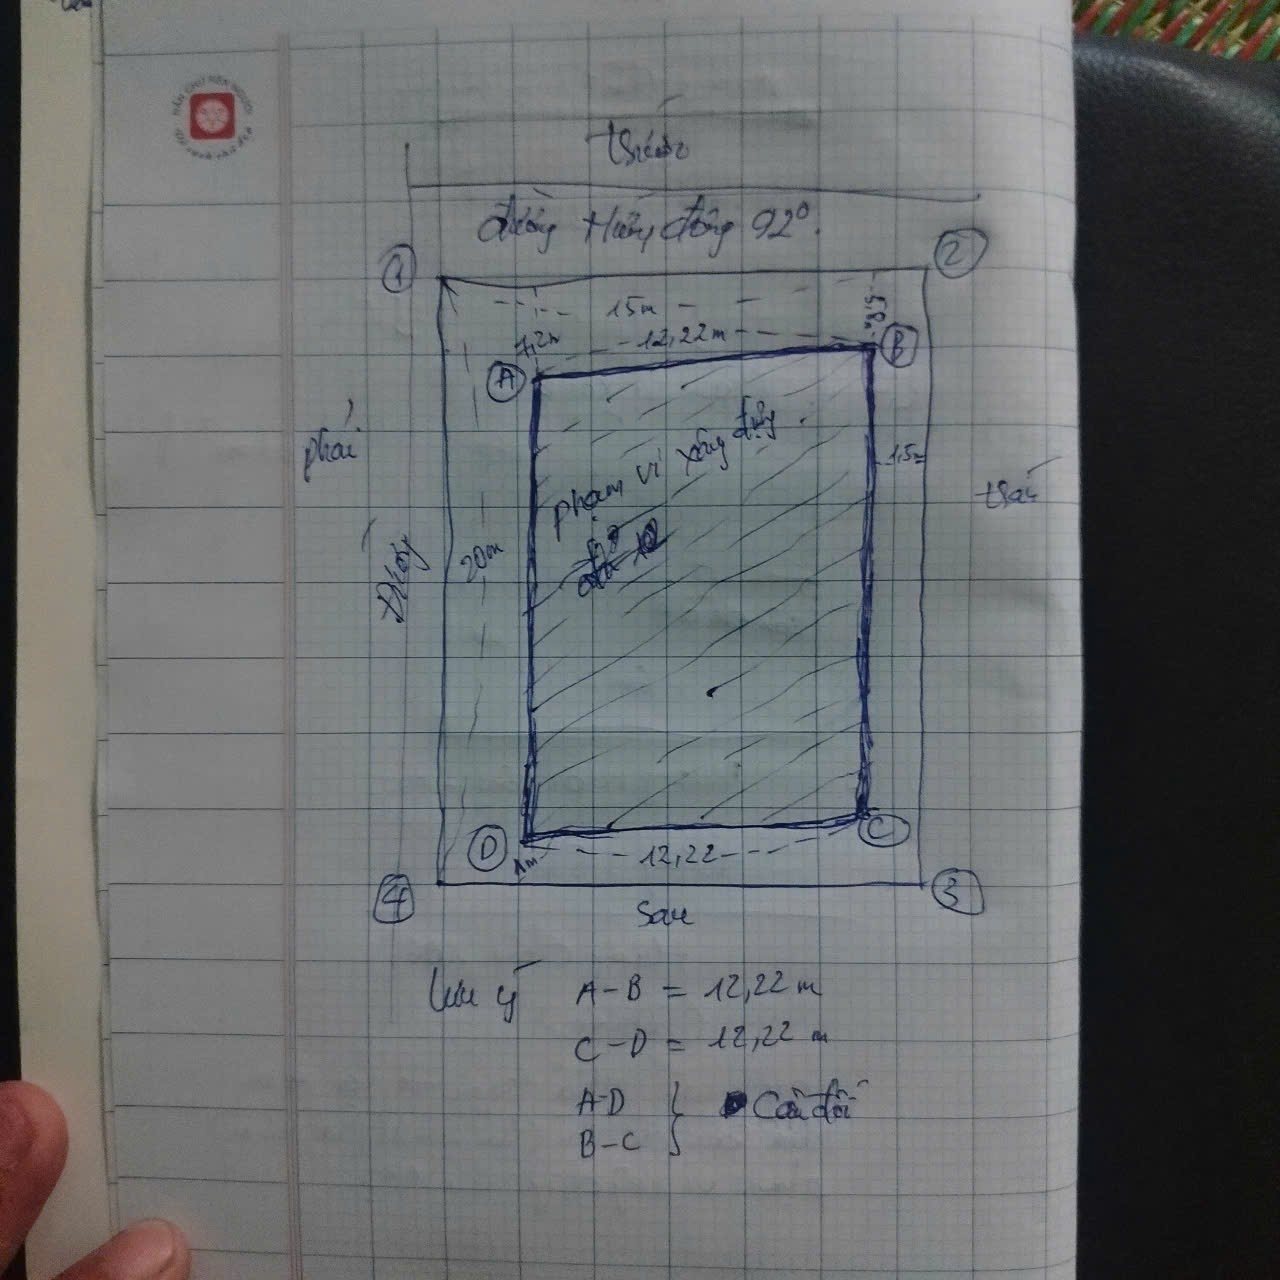 trước
đường Hướng đông 92°.
1
2
15m
5,8m
7,2m
12,22m
A
B
phải
phạm vi xây dựng
1,5m
trái
Đường
20m
D
C
1m
12,22
4
3
Sau
Lưu ý A-B = 12,22 m
C-D = 12,22 m
A-D
B-C } Cân đối